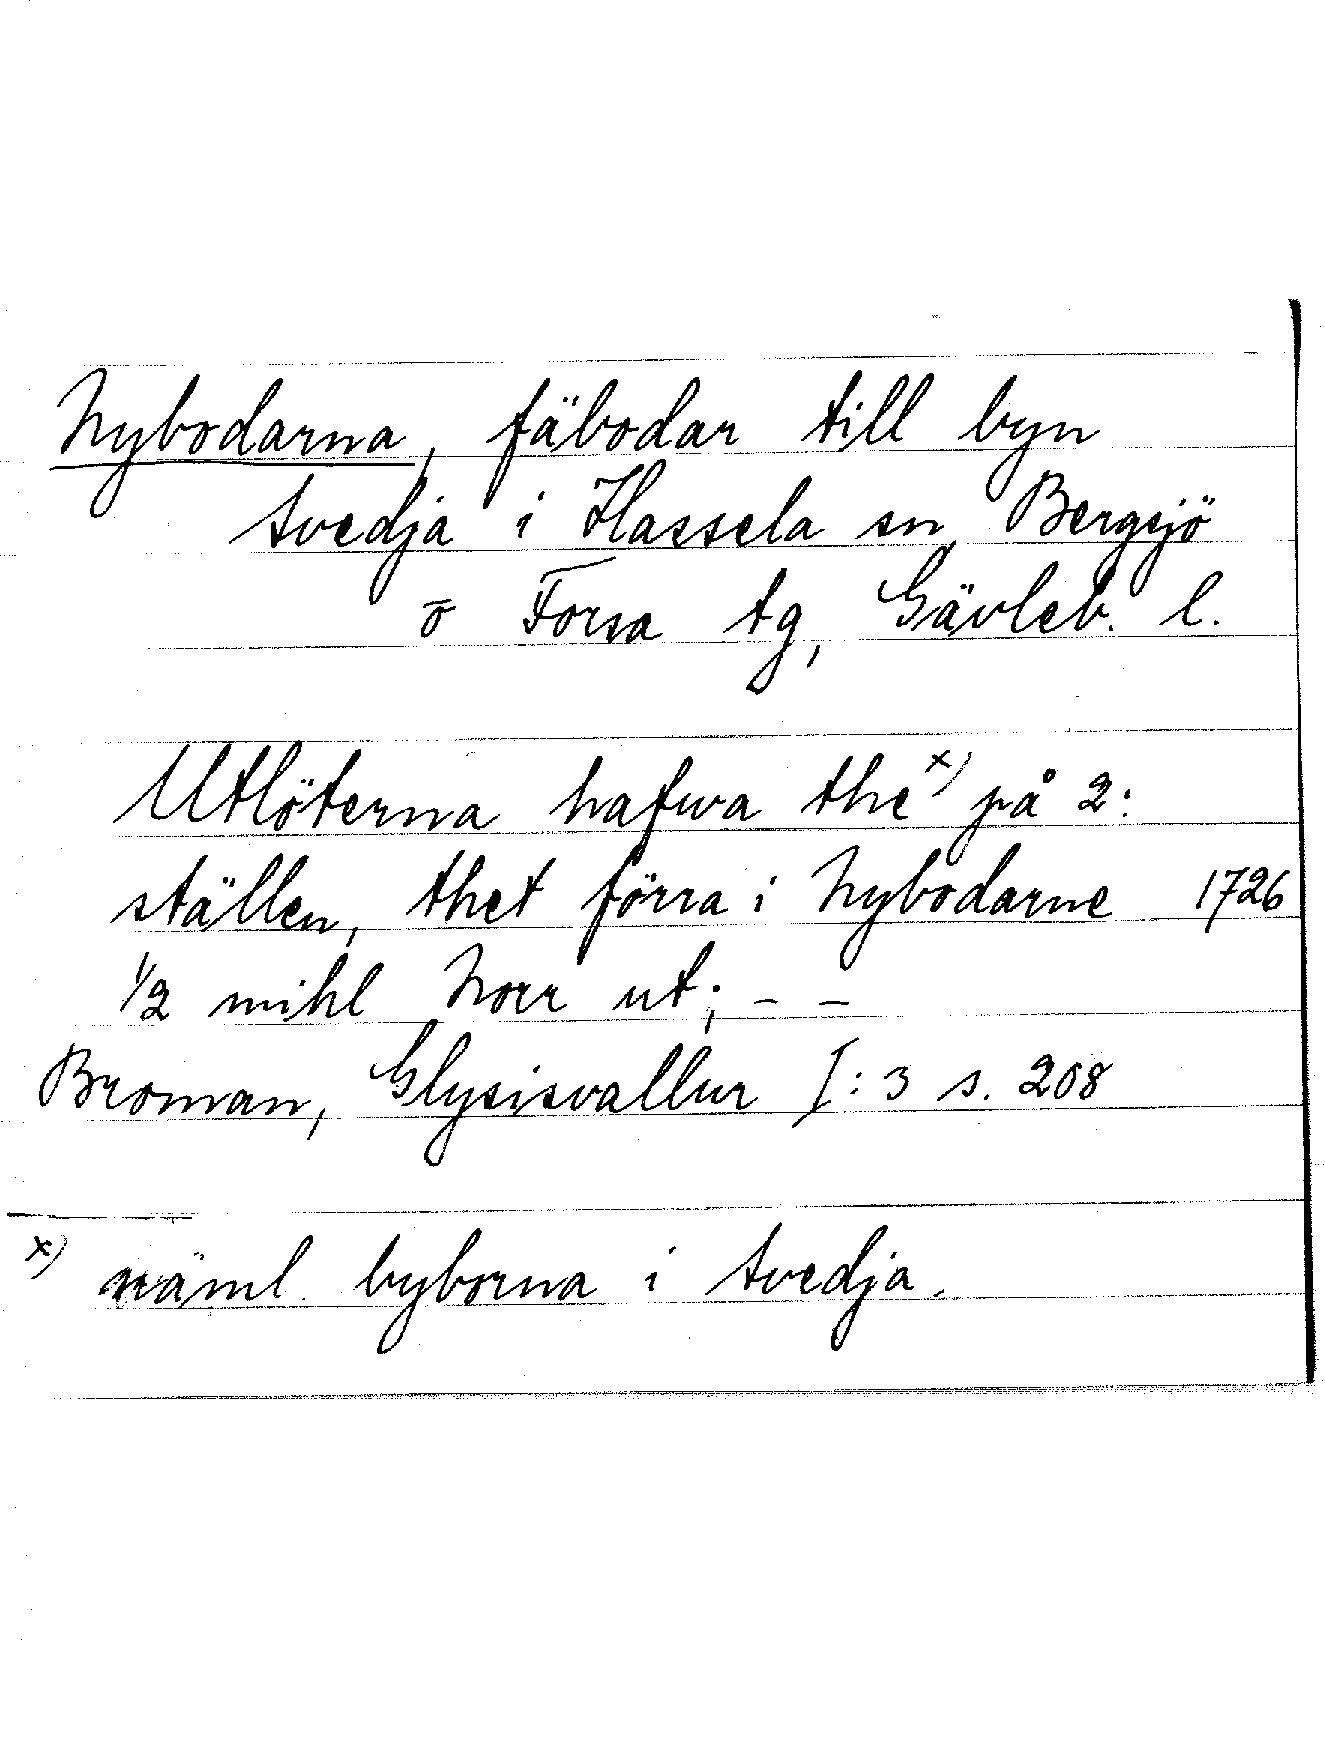 Nybodarna, fäbodar till byn
Svedja i Hassela sn, Bergsjö
o Forsa tg, Gävleb. l.
Utlöterna hafwa the x) på 2:
ställen, thet förra i Nybodarne 1726
1/2 mihl Norr ut; - -
Broman, Glysisvallur I:3 s. 208
x) näml. byborna i Svedja.